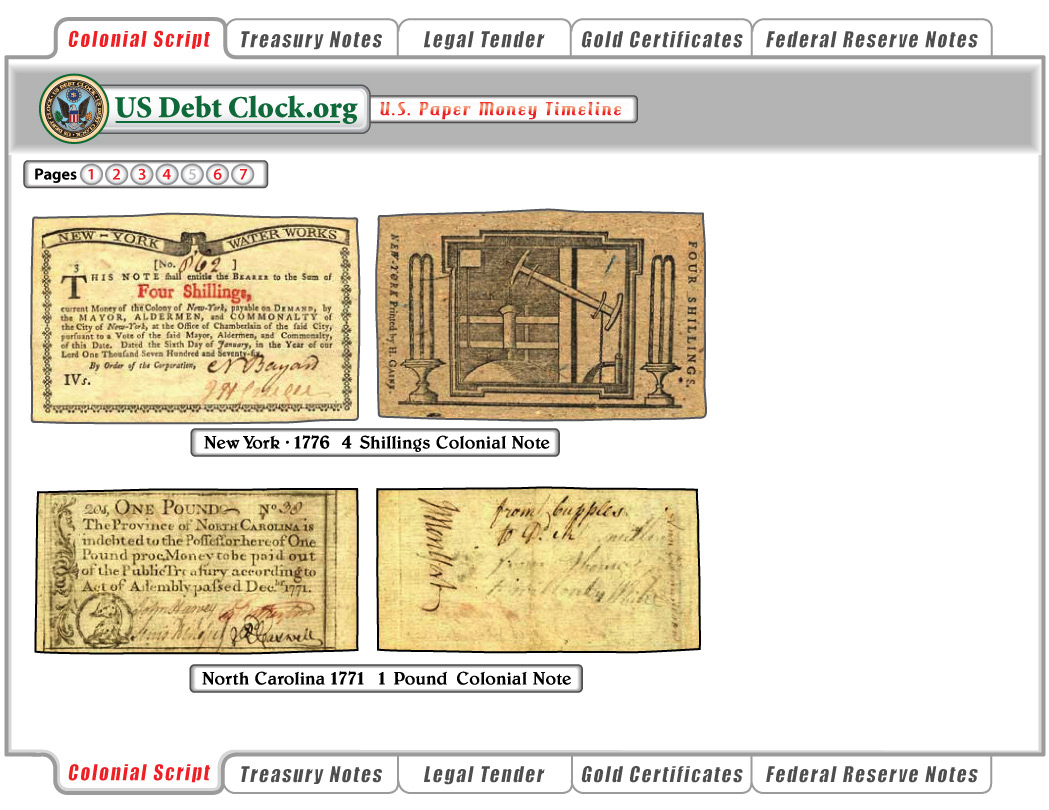 Colonial Script Treasury Notes Legal Tender Gold Certificates Federal Reserve Notes
US Debt Clock.org U.S. Paper Money Timeline
Pages 1 2 3 4 5 6 7
NEW-YORK WATER WORKS
[No. 862 ]
THIS NOTE shall entitle the BEARER to the Sum of
Four Shillings,
current Money of the Colony of New-York, payable on DEMAND, by
the MAYOR, ALDERMEN, and COMMONALTY of
the City of New-York, at the Office of Chamberlain of the said City,
pursuant to a Vote of the said Mayor, Aldermen, and Commonalty,
of this Date. Dated the Sixth Day of January, in the Year of our
Lord One Thousand Seven Hundred and Seventy-six.
By Order of the Corporation,
N Bayard
IVs.
NEW-YORK Printed by H. GAINE
FOUR SHILLINGS.
New York · 1776 4 Shillings Colonial Note
20s, ONE POUND No 38
The Province of NORTH CAROLINA is
indebted to the Possessor hereof One
Pound proc. Money to be paid out
of the Public Treasury according to
Act of Assembly passed Dec. 1771.
John Harvey
from Cupples
to
North Carolina 1771 1 Pound Colonial Note
Colonial Script Treasury Notes Legal Tender Gold Certificates Federal Reserve Notes